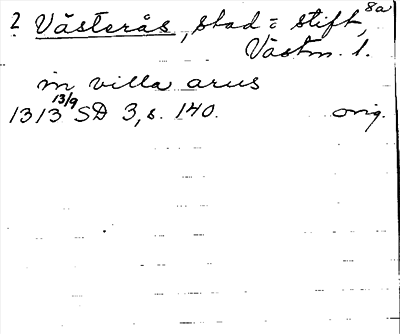 8a
2 Västerås, stad = stift,
Västm. l.
in villa arus
1313 13/9 SD 3, s. 140. orig.